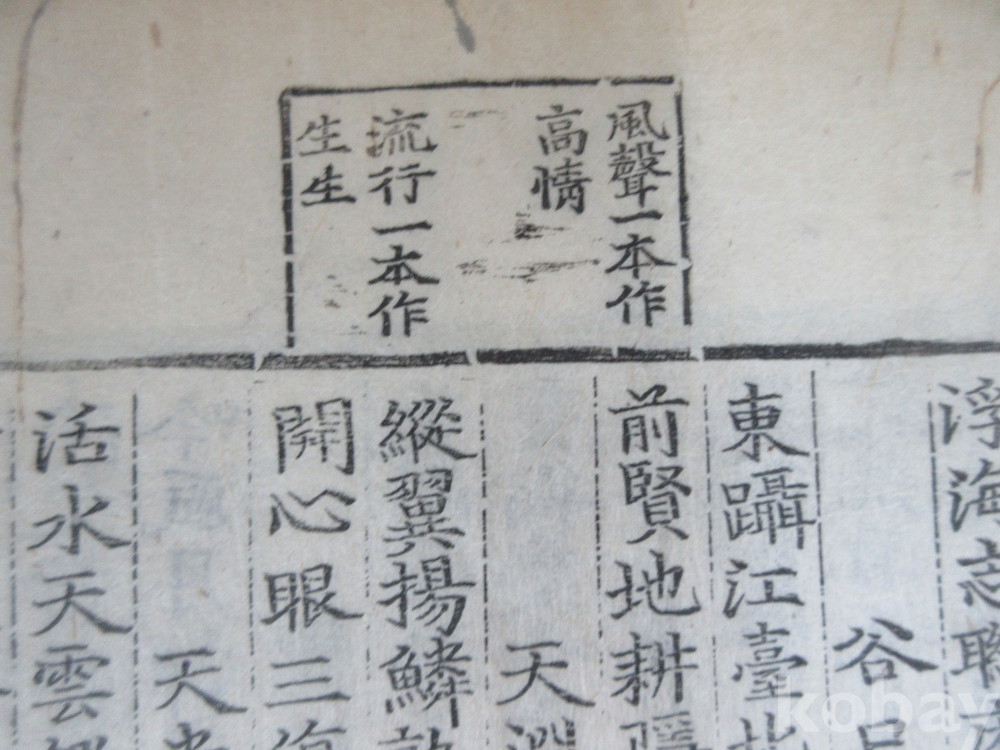 風聲一本作
高情
流行一本作
生生
浮海志聯
谷
東躡江臺
前賢地耕隱
天
縱翼揚鱗
開心眼三復
天
活水天雲
kobay